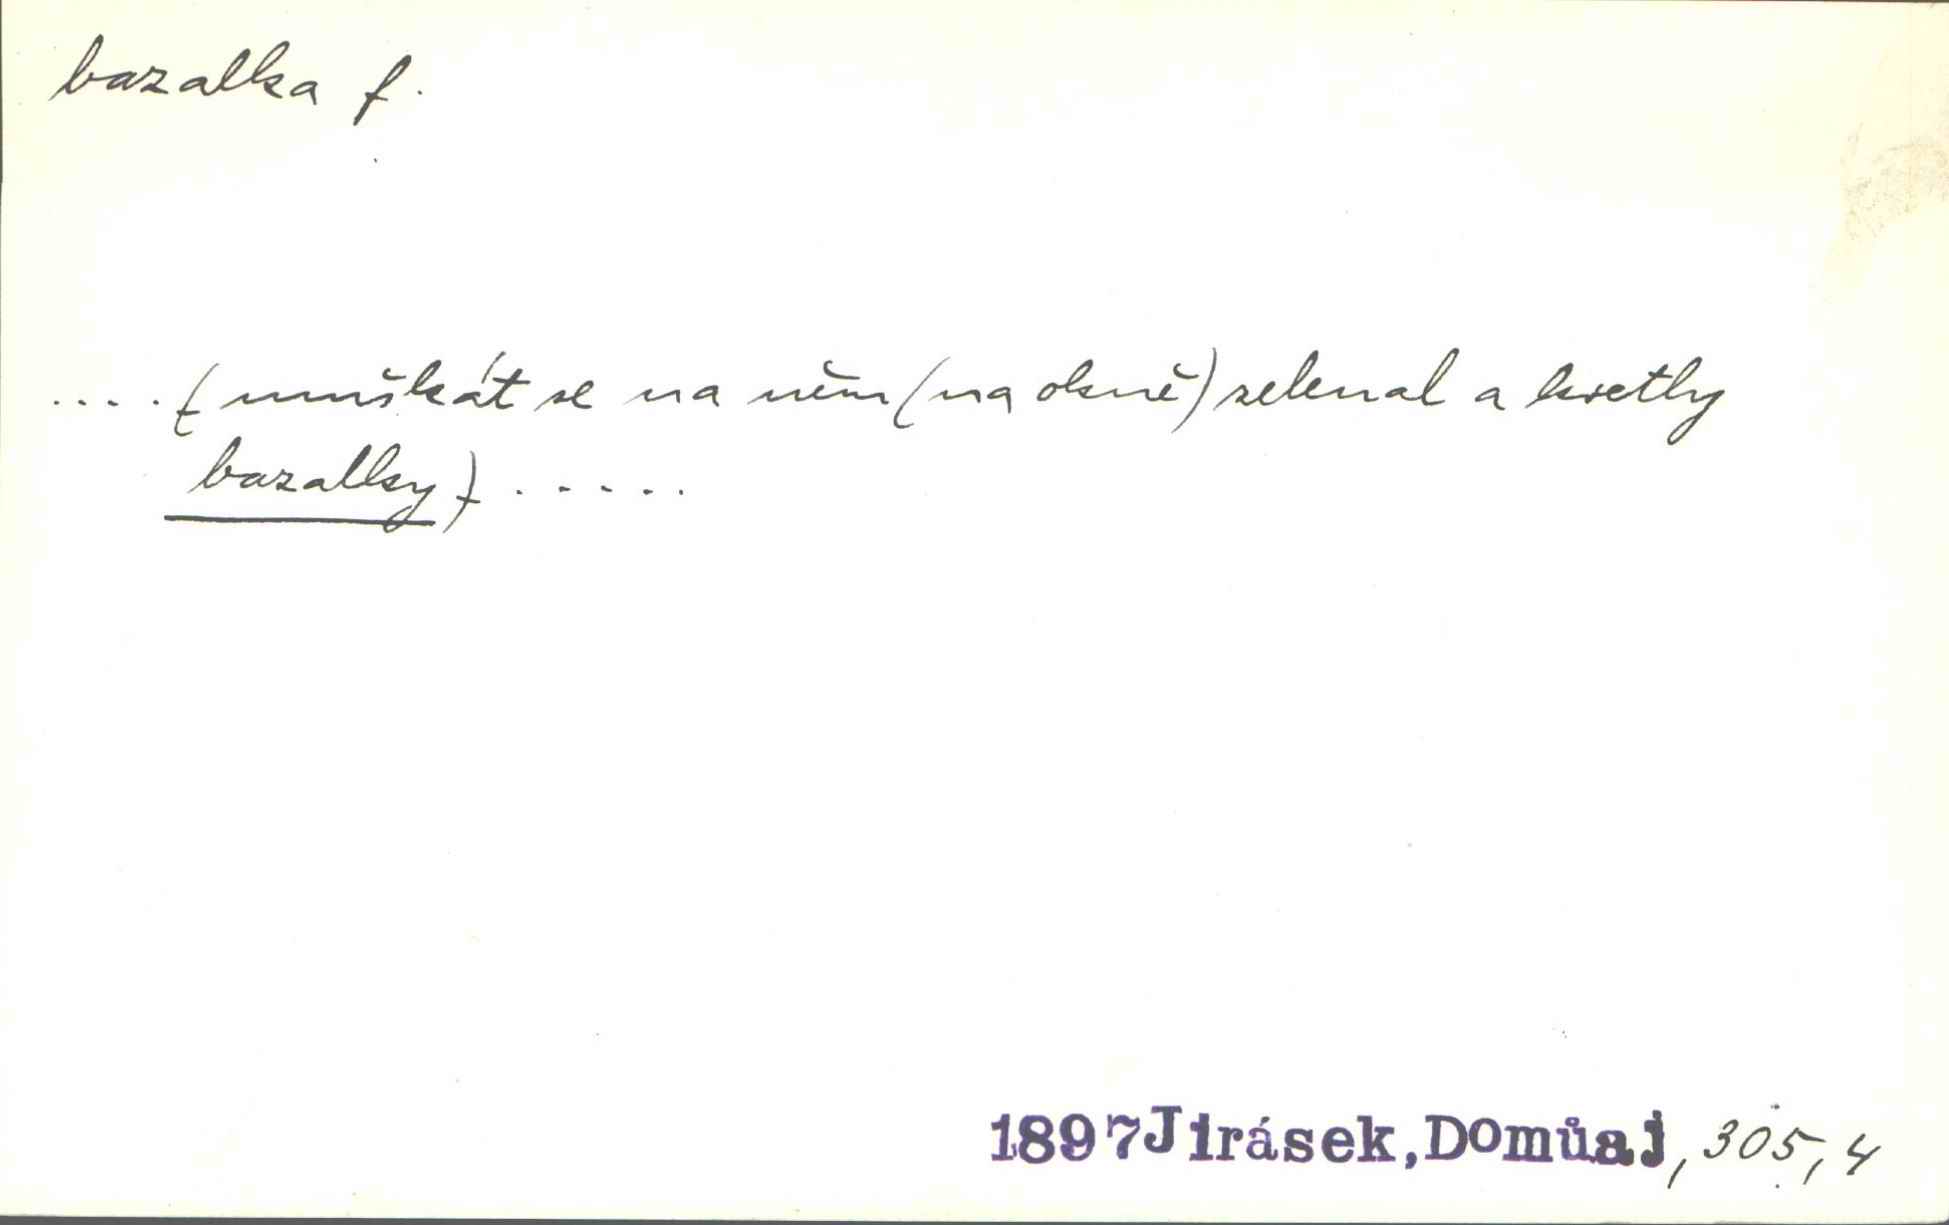 bazalka f.
.... (muškát se na něm (na okně) zelenal a kvetly
bazalky) .....
1897 Jirásek, Domůaj, 305, 4